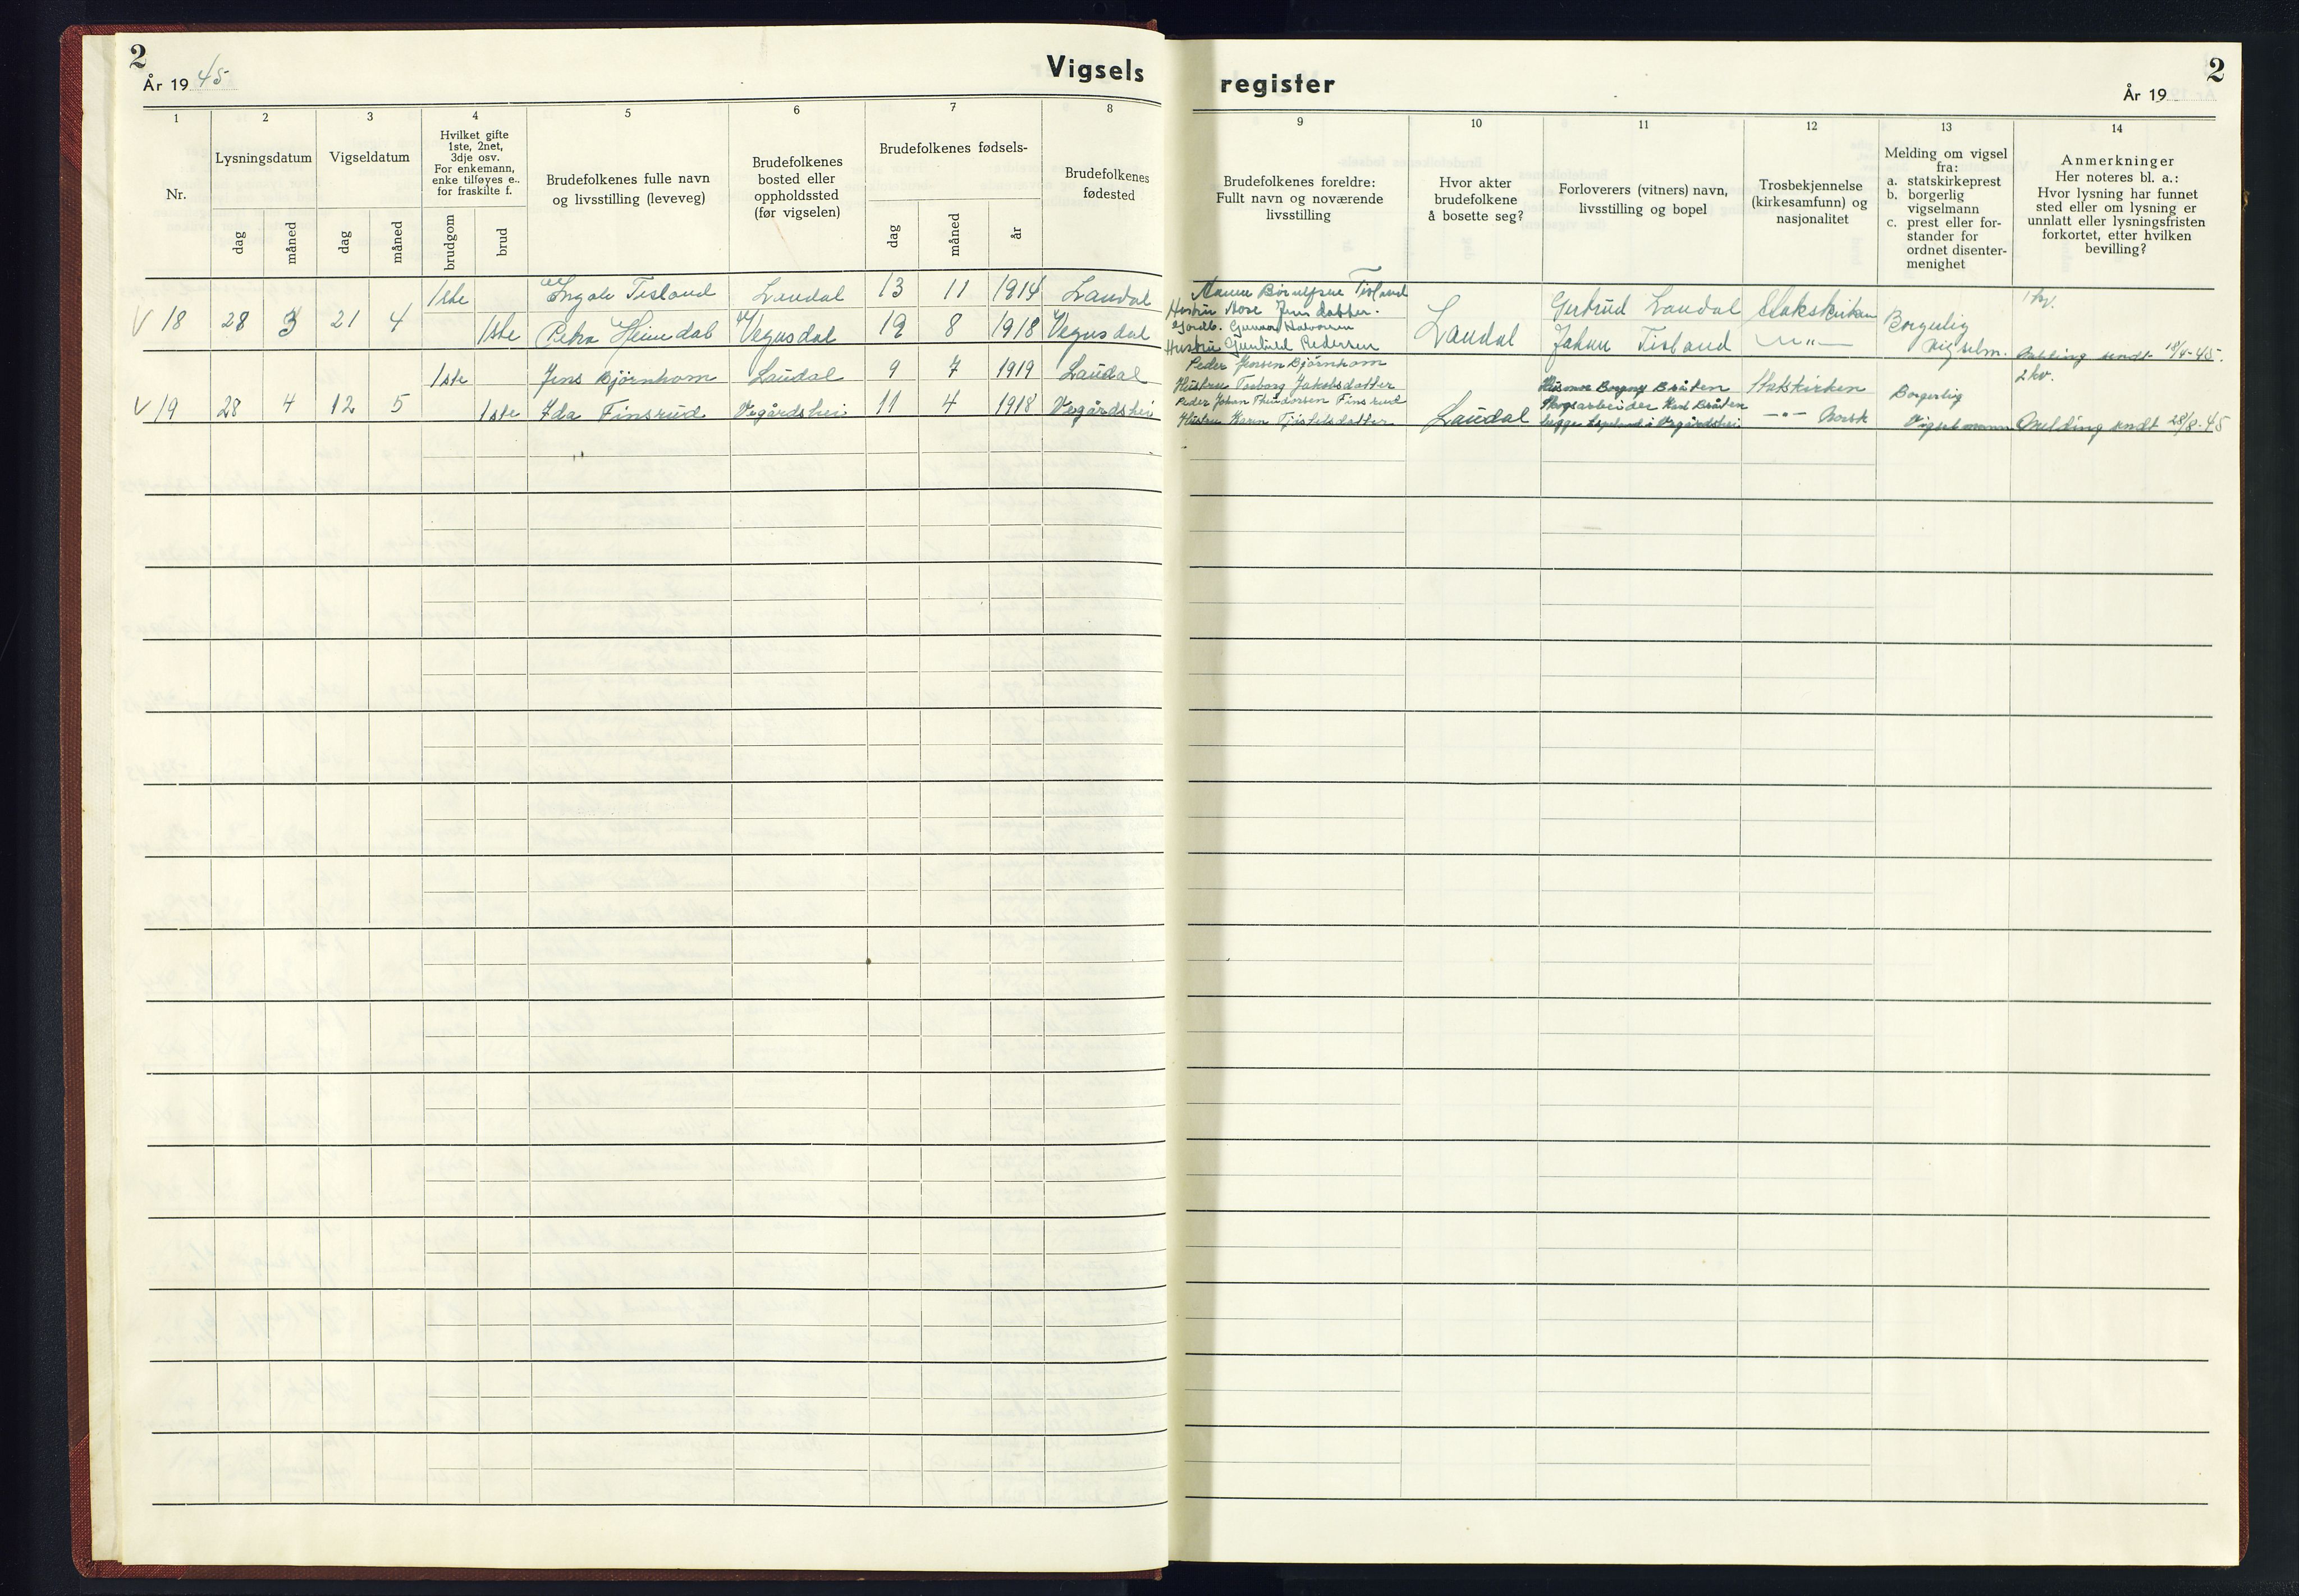 2
År 19 45
Vigsels
register
2
År 19
1
2
3
4
5
6
7
8
9
10
11
12
13
14
Nr.
Lysningsdatum
dag
måned
Vigseldatum
dag
måned
Hvilket gifte
1ste, 2net,
3dje osv.
For enkemann,
enke tilføyes e..
for fraskilte f.
brudgom
brud
Brudefolkenes fulle navn
og livsstilling (leveveg)
Brudefolkenes
bosted eller
oppholdssted
(før vigselen)
Brudefolkenes fødsels-
dag
måned
år
Brudefolkenes
fødested
Brudefolkenes foreldre:
Fullt navn og noværende
livsstilling
Hvor akter
brudefolkene
å bosette seg?
Forloverers (vitners) navn,
livsstilling og bopel
Trosbekjennelse
(kirkesamfunn) og
nasjonalitet
Melding om vigsel
fra:
a. statskirkeprest
b. borgerlig
vigselmann
c. prest eller for-
stander for
ordnet disenter-
menighet
Anmerkninger
Her noteres bl. a.:
Hvor lysning har funnet
sted eller om lysning er
unnlatt eller lysningsfristen
forkortet, etter hvilken
bevilling?
1ste Tisland Laudal 13 11 1914 Laudal
V 18 28 3 21 4
1ste Petra Heimdal Vegusdal 19 8 1918 Vegusdal
Tisland
Hustru Jensdatter.
Gunnar Halvorsen
Hustru Gunhild Pedersen
Laudal
Gertrud Laudal
Johan Tisland
Statskirken
— " —
Borgerlig
vigselm.
1 kv.
Melding sendt 18/4-45.
1ste Jens Bjørnhom Laudal 9 7 1919 Laudal
V 19 28 4 12 5
1ste Ida Finsrud Vegårdshei 11 4 1918 Vegårdshei
Peder Jensen Bjørnhom
Hustru Torborg Jakobsdatter
Peder Johan Finsrud
Hustru Karen
Laudal
Husmor Borgny Bråten
Skogsarbeider Karl Bråten
begge i Vegårdshei
Statskirken
— " — Norsk
Borgerlig
Vigselmann
2 kv.
Melding sendt 28/8-45